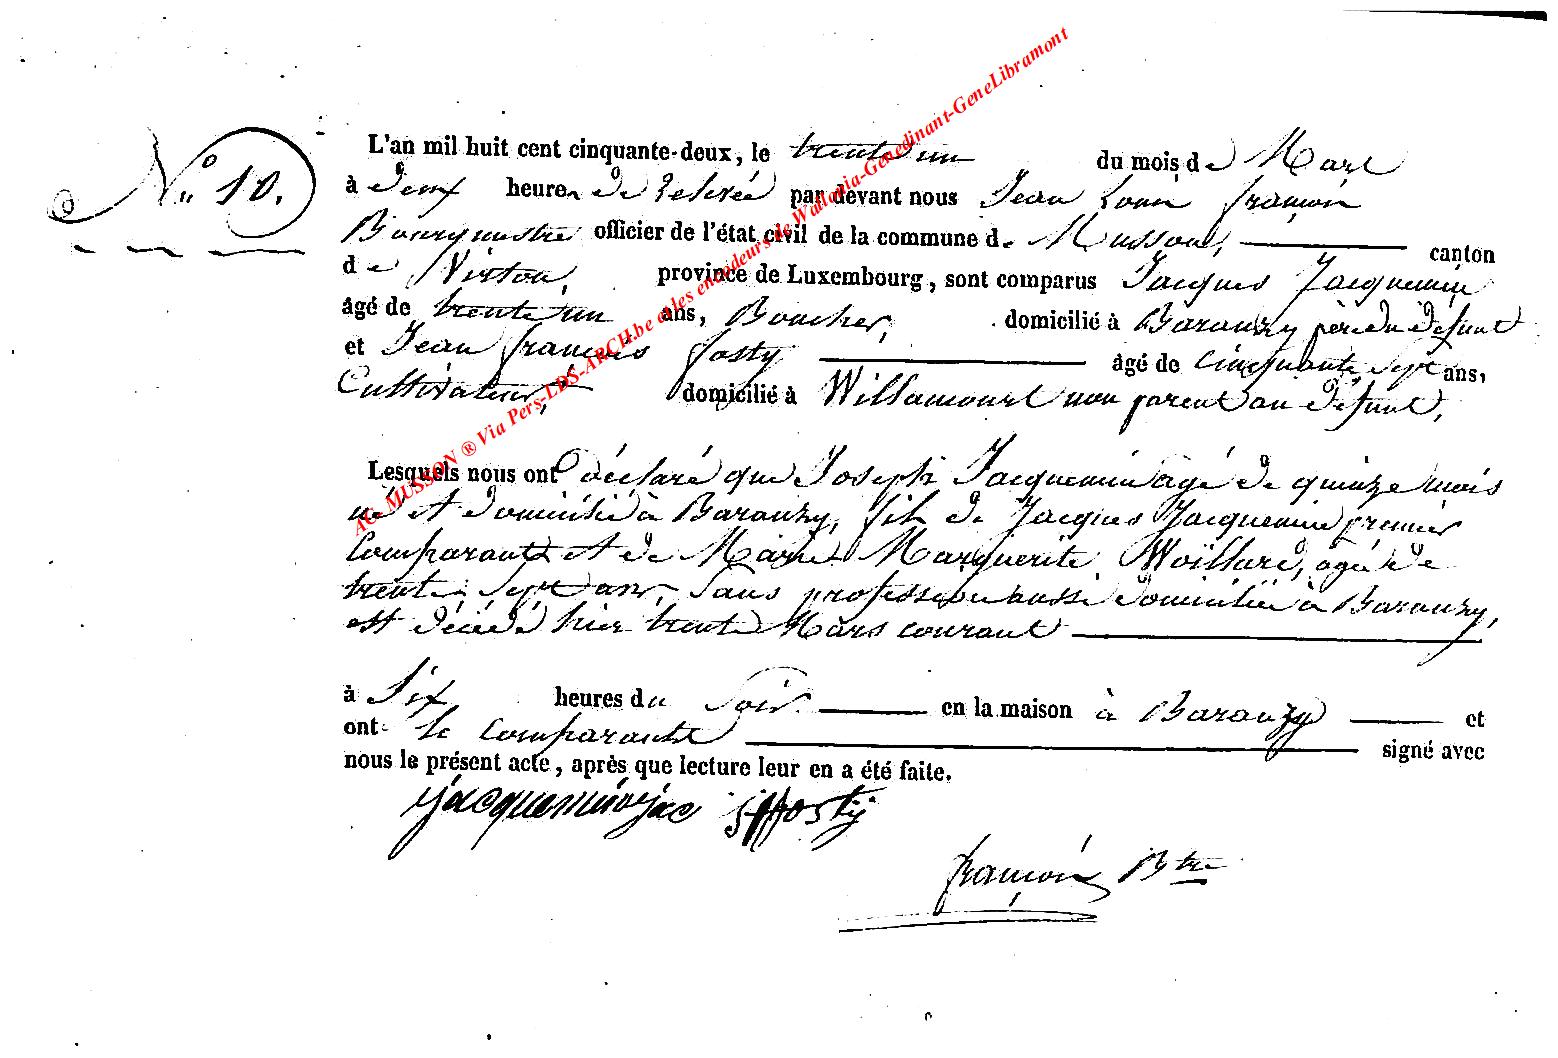 N.° 10.
L'an mil huit cent cinquante-deux, le trente un du mois de Mars
à deux heures de relevée par devant nous Jean Louis françois
Bourgmestre officier de l'état civil de la commune de Musson, canton
de Virton, province de Luxembourg, sont comparus Jacques Jacquemin
âgé de trente un ans, Boucher, domicilié à Baranzy père du défunt
et Jean françois fosty âgé de cinquante sept ans,
Cultivateur, domicilié à Willancourt non parent au défunt,
Lesquels nous ont déclaré que Joseph Jacquemin agé de quinze mois
né et domicilié à Baranzy, fils de Jacques Jacquemin premier
Comparant et de Marie Marguerite Woillard, agée de
trente sept ans, Sans profession aussi domiciliée à Baranzy,
est décédé hier trente Mars courant
à Six heures du Soir en la maison à Baranzy et
ont les Comparants signé avec
nous le présent acte, après que lecture leur en a été faite.
jacquemin jac jffosty
françois Btre
AC- MUSSON ® Via Pers-LDS-ARCH.be et les encodeurs de Wallonia-Genedinant-GeneLibramont